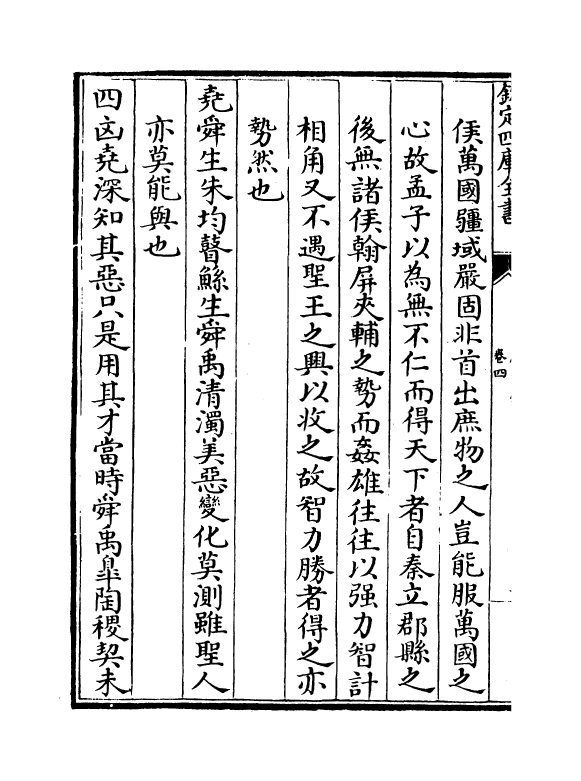 欽定四庫全書
卷四
侯萬國疆域嚴固非首出庶物之人豈能服萬國之
心故孟子以為無不仁而得天下者自秦立郡縣之
後無諸侯翰屏夾輔之勢而姦雄往往以强力智計
相角又不遇聖王之興以收之故智力勝者得之亦
勢然也
堯舜生朱均瞽鯀生舜禹清濁美惡變化莫測雖聖人
亦莫能與也
四凶堯深知其惡只是用其才當時舜禹臯陶稷契未